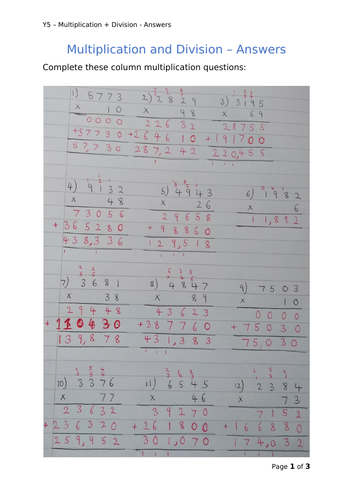 Y5 – Multiplication + Division - Answers
Multiplication and Division – Answers
Complete these column multiplication questions:
1) 5773 2) 2829 3) 3195
x 10 x 98 x 69
0000 22632 28755
+57730 +264610 +191700
57,730 287,242 220,455
4) 9132 5) 4943 6) 1982
x 48 x 26 x 6
73056 29658 11,892
+365280 +98860
438,336 129,518
7) 3681 8) 4847 9) 7503
x 38 x 89 x 10
29448 43623 0000
+110430 +387760 +75030
139,878 431,383 75,030
10) 3376 11) 6545 12) 2384
x 77 x 46 x 73
23632 39270 7152
+236320 +261800 +166880
259,952 301,070 174,032
Page 1 of 3